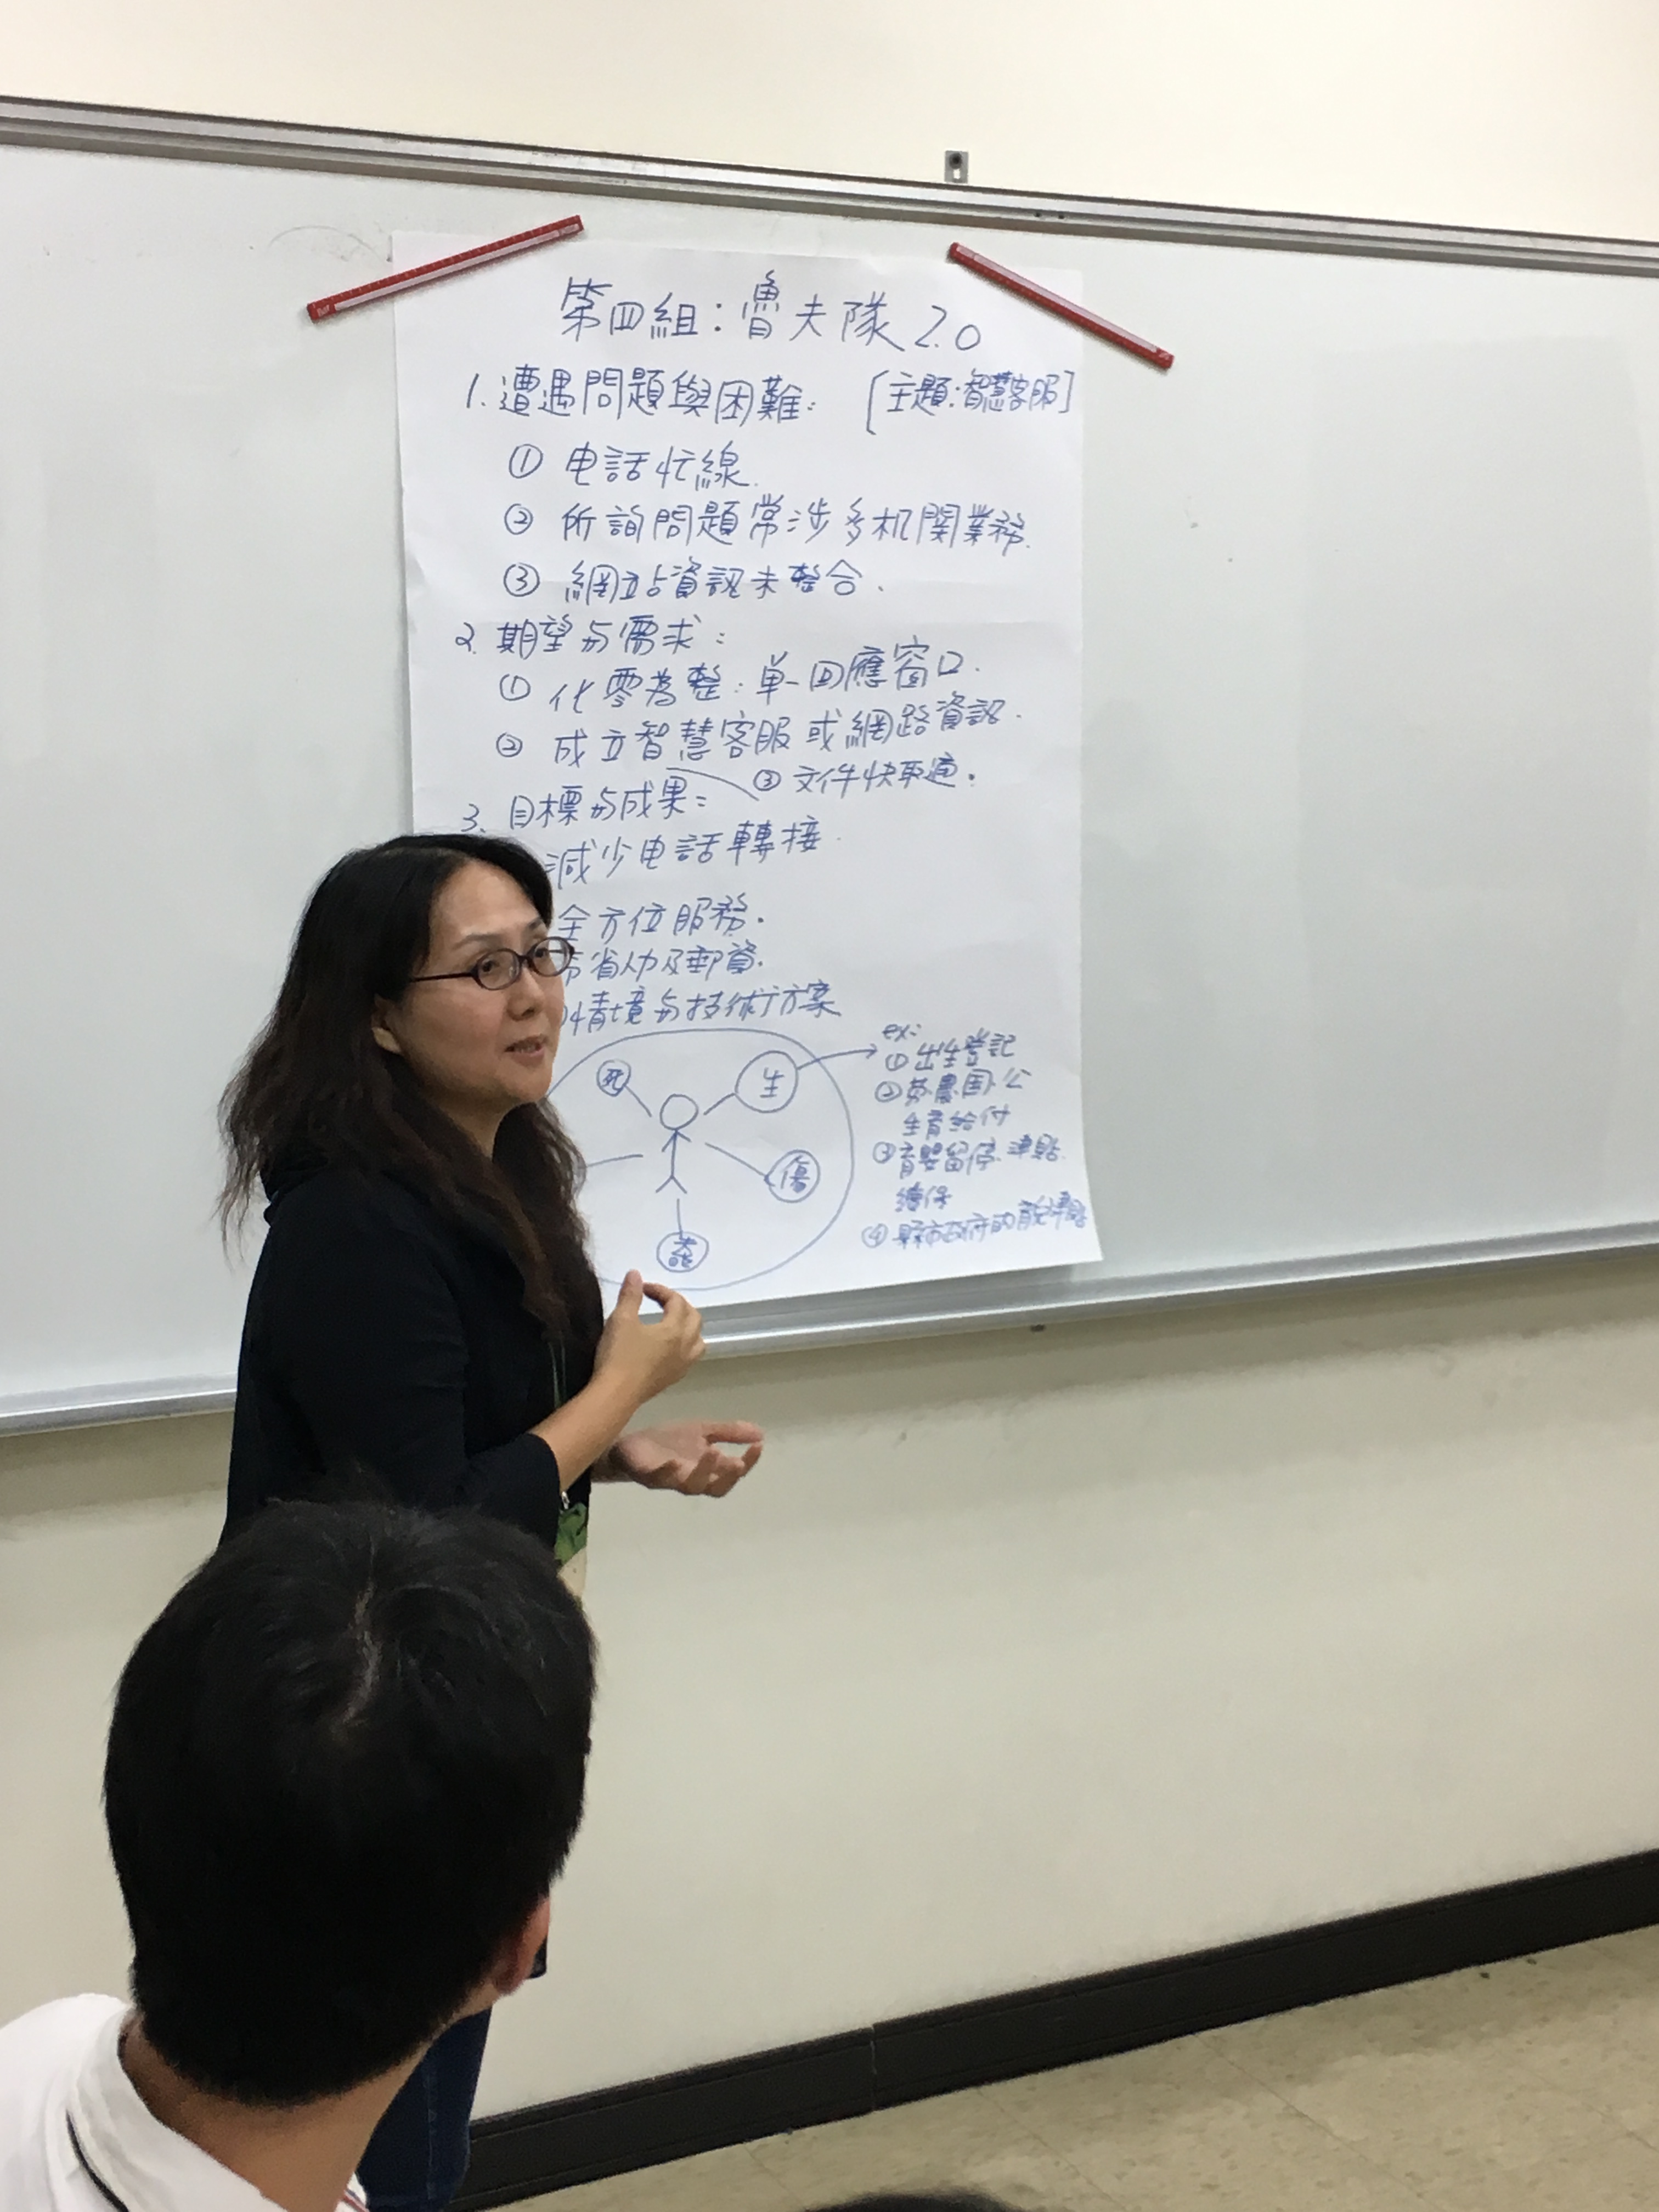 第四組：魯夫隊 2.0
1. 遭遇問題與困難： [主題：智慧客服]
① 电話忙線.
② 所詢問題常涉多机関業務.
③ 網站資訊未整合.
2. 期望与需求：
① 化零為整：單一回應窗口.
② 成立智慧客服或網路資訊.
③ 文件快取道.
3. 目標与成果：
減少电話轉接.
全方位服務.
省人力及郵資.
情境与技術方案
死
生
傷
老
ex:
① 出生登記
② 勞.農.国.公
生育給付
③ 育嬰留停.津貼.
續保
④ 縣市政府的